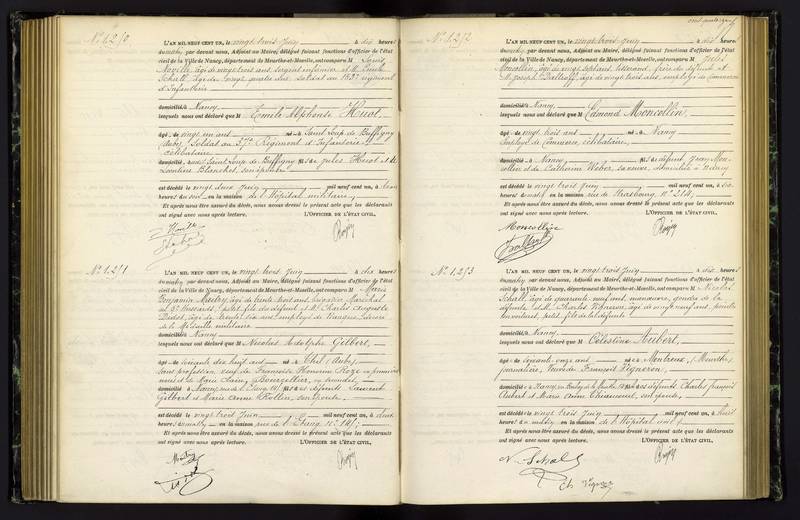 N° 1.2/0
L'AN MIL NEUF CENT UN, le vingt trois Juin à dix heures
du matin par devant nous, Adjoint au Maire, délégué faisant fonctions d'officier de l'état
civil de la Ville de Nancy, département de Meurthe-et-Moselle, ont comparu M Louis
âgé de vingt trois ans, sergent infirmier et M. Emile
Schatz, âgé de vingt quatre ans soldat au régiment
d'Infanterie
domiciliés à Nancy
lesquels nous ont déclaré que M Emile Alphonse Huot,
âgé de vingt un ans né à Saint Loup de Buffigny
(Aube) Soldat au 37e Régiment d'Infanterie,
célibataire
domicilié, avant Saint Loup de Buffigny fils de Jules Huot et de
Léontine Blanchet, son épouse
est décédé le vingt deux Juin mil neuf cent un, à
heures du soir en la maison de l'Hôpital militaire,
Et après nous être assuré du décès, nous avons dressé le présent acte que les déclarants
ont signé avec nous après lecture. L'OFFICIER DE L'ÉTAT CIVIL,
N° 1.2/1
L'AN MIL NEUF CENT UN, le vingt trois Juin à dix heures
du matin par devant nous, Adjoint au Maire, délégué faisant fonctions d'officier de l'état
civil de la Ville de Nancy, département de Meurthe-et-Moselle, ont comparu M Marie
Benjamin âgé de trente huit ans, Maréchal
petit fils du défunt et M. Charles Auguste
âgé de trente six ans employé de
de la Médaille militaire
domiciliés à Nancy
lesquels nous ont déclaré que M Nicolas Adolphe Gilbert,
âgé de soixante dix huit ans né à Thil (Aube)
sans profession, veuf de Françoise Honorine Roze en premières
noces et de Marie Claire Bourzellier, en secondes,
domicilié à Nancy, rue de l'Etang 15/ fils de défunt Laurent
Gilbert et Marie Anne Rollin, son épouse
est décédé le vingt trois Juin mil neuf cent un, à deux
heures du matin en la maison rue de l'Etang n° 15/;
Et après nous être assuré du décès, nous avons dressé le présent acte que les déclarants
ont signé avec nous après lecture. L'OFFICIER DE L'ÉTAT CIVIL,
N° 1.2/2
L'AN MIL NEUF CENT UN, le vingt trois Juin à dix heures
du matin par devant nous, Adjoint au Maire, délégué faisant fonctions d'officier de l'état
civil de la Ville de Nancy, département de Meurthe-et-Moselle, ont comparu M Jules
Moncollin, âgé de vingt sept ans, frère du défunt et
M. Joseph âgé de vingt trois ans, employé de commerce
domiciliés à Nancy
lesquels nous ont déclaré que M Edmond Moncollin,
âgé de vingt trois ans né à Nancy
Employé de Commerce, célibataire,
domicilié à Nancy fils de défunt Jean Mon-
collin et de Catherine Weber, sa veuve, domiciliée à Nancy
est décédé le vingt trois Juin mil neuf cent un, à six
heures du matin en la maison rue de Strasbourg n° 214,
Et après nous être assuré du décès, nous avons dressé le présent acte que les déclarants
ont signé avec nous après lecture. L'OFFICIER DE L'ÉTAT CIVIL,
N° 1.2/3
L'AN MIL NEUF CENT UN, le vingt trois Juin à dix heures
du matin par devant nous, Adjoint au Maire, délégué faisant fonctions d'officier de l'état
civil de la Ville de Nancy, département de Meurthe-et-Moselle, ont comparu M Nicolas
Schall, âgé de quarante neuf ans, manœuvre, gendre de la
défunte et M. Charles âgé de vingt neuf ans, peintre
en voitures, petit fils de la défunte
domiciliés à Nancy
lesquels nous ont déclaré que M Célestine Aubert,
âgée de soixante onze ans née à Montreux, (Meurthe)
journalière, Veuve de François Vigneron,
domiciliée à Nancy fille de défunts Charles François
Aubert et Marie Anne son épouse,
est décédée le vingt trois Juin mil neuf cent un, à huit
heures du matin en la maison de l'Hôpital civil
Et après nous être assuré du décès, nous avons dressé le présent acte que les déclarants
ont signé avec nous après lecture. L'OFFICIER DE L'ÉTAT CIVIL,
N. Schall